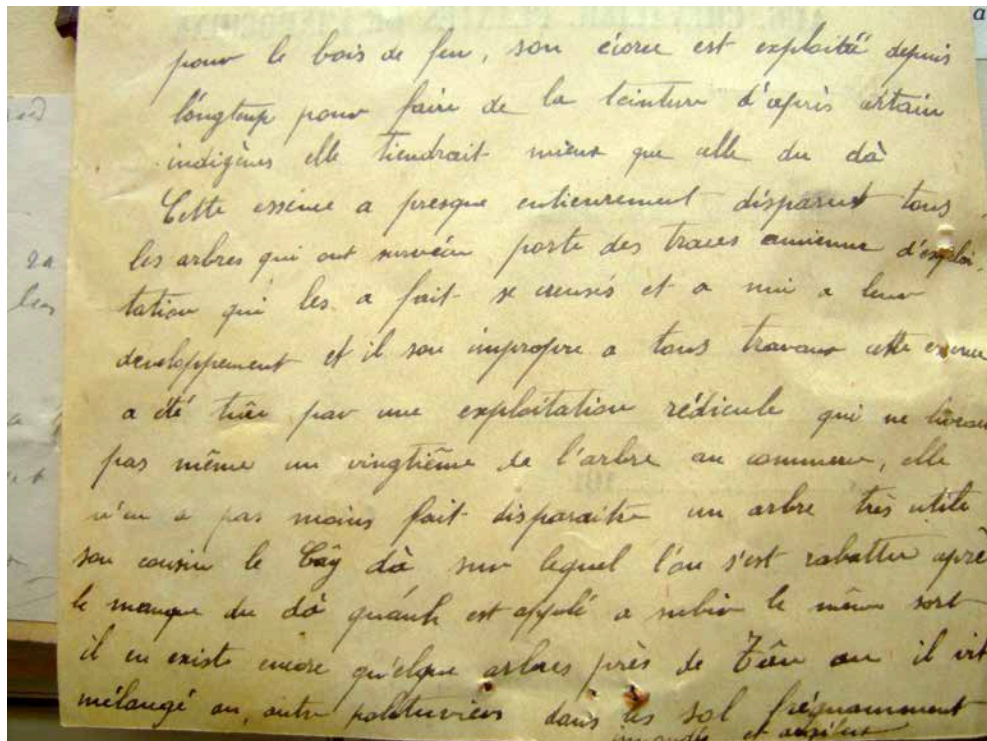 pour le bois de feu, son écorce est exploité depuis
longtemp pour faire de la teinture d'après certain
indigènes elle tiendrait mieux que celle du dà
Cette essence a presque entieurement disparut tous
les arbres qui ont survécu porte des traces ancienne d'exploi-
tation qui les a fait se creusés et a nui a leur
développement et il son impropre a tous travaux cette essence
a été tuée par une exploitation rédicule qui ne livrai
pas même un vingtième de l'arbre au commerce, elle
n'en a pas moins fait disparaitre un arbre très utile
son cousin le Cây dà sur lequel l'on s'est rabattu aprè
le manque du dà quánh est appelé a subir le même sort
il en existe encore quélque arbres près de où il vit
mélangé au, autre palétuviers dans les sol fréquamment
inondés et argileux